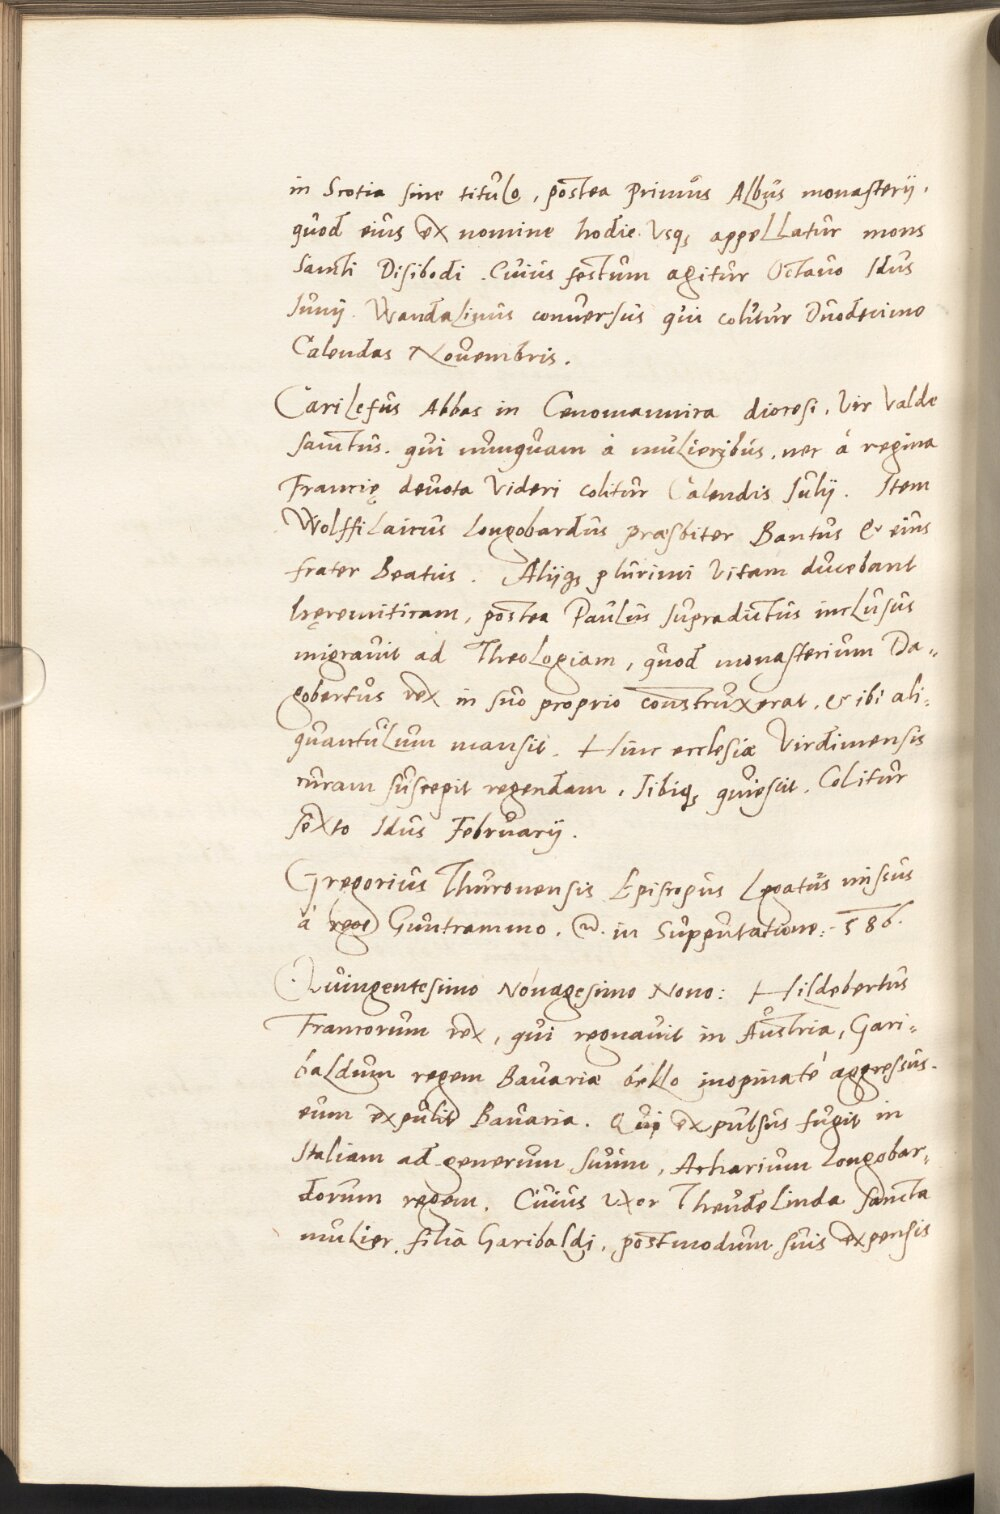 in Scotia sine titulo, postea primus Albus monasterij.
quod eius ex nomine hodie usq; appellatur mons
Sancti Disibodi. Cuius festum agitur Octauo Idus
Iunij. Wandalinus conuersus qui colitur Duodecimo
Calendas Nouembris.
Carilefus Abbas in Cenomannica diocesi. Vir valde
sanctus. qui nunquam à mulieribus. nec á regina
Francię deuota videri colitur Calendis Iulij. Item
Wolffilaicus Longobardus præsbiter Bantus & eius
frater Beatus. Alijq; plurimi vitam ducebant
hęremiticam, postea Paulus supradictus inclusus
migrauit ad Theologiam, quod monasterium Da„
gobertus rex in suo proprio construxerat. & ibi ali:
quantulum mansit. Hinc ecclesiæ Virdunensis
curam suscepit regendam. Sibiq; quiescit. Colitur
sexto Idus Februarij.
Gregorius Thuronensis Episcopus Legatus missus
à rege Guntrammo. in Supputatione: 586.
Quingentesimo Nonagesimo Nono: Hildebertus
Francorum rex, qui regnauit in Austria, Gari:
baldum regem Bauariæ bello inopinaté aggressus.
eum expulit Bauaria. Qui expulsus fugit in
Italiam ad generum suum, Atharium Longobar„
dorum regem. Cuius uxor Theudelinda sancta
mulier filia Garibaldi. postmodum suis expensis